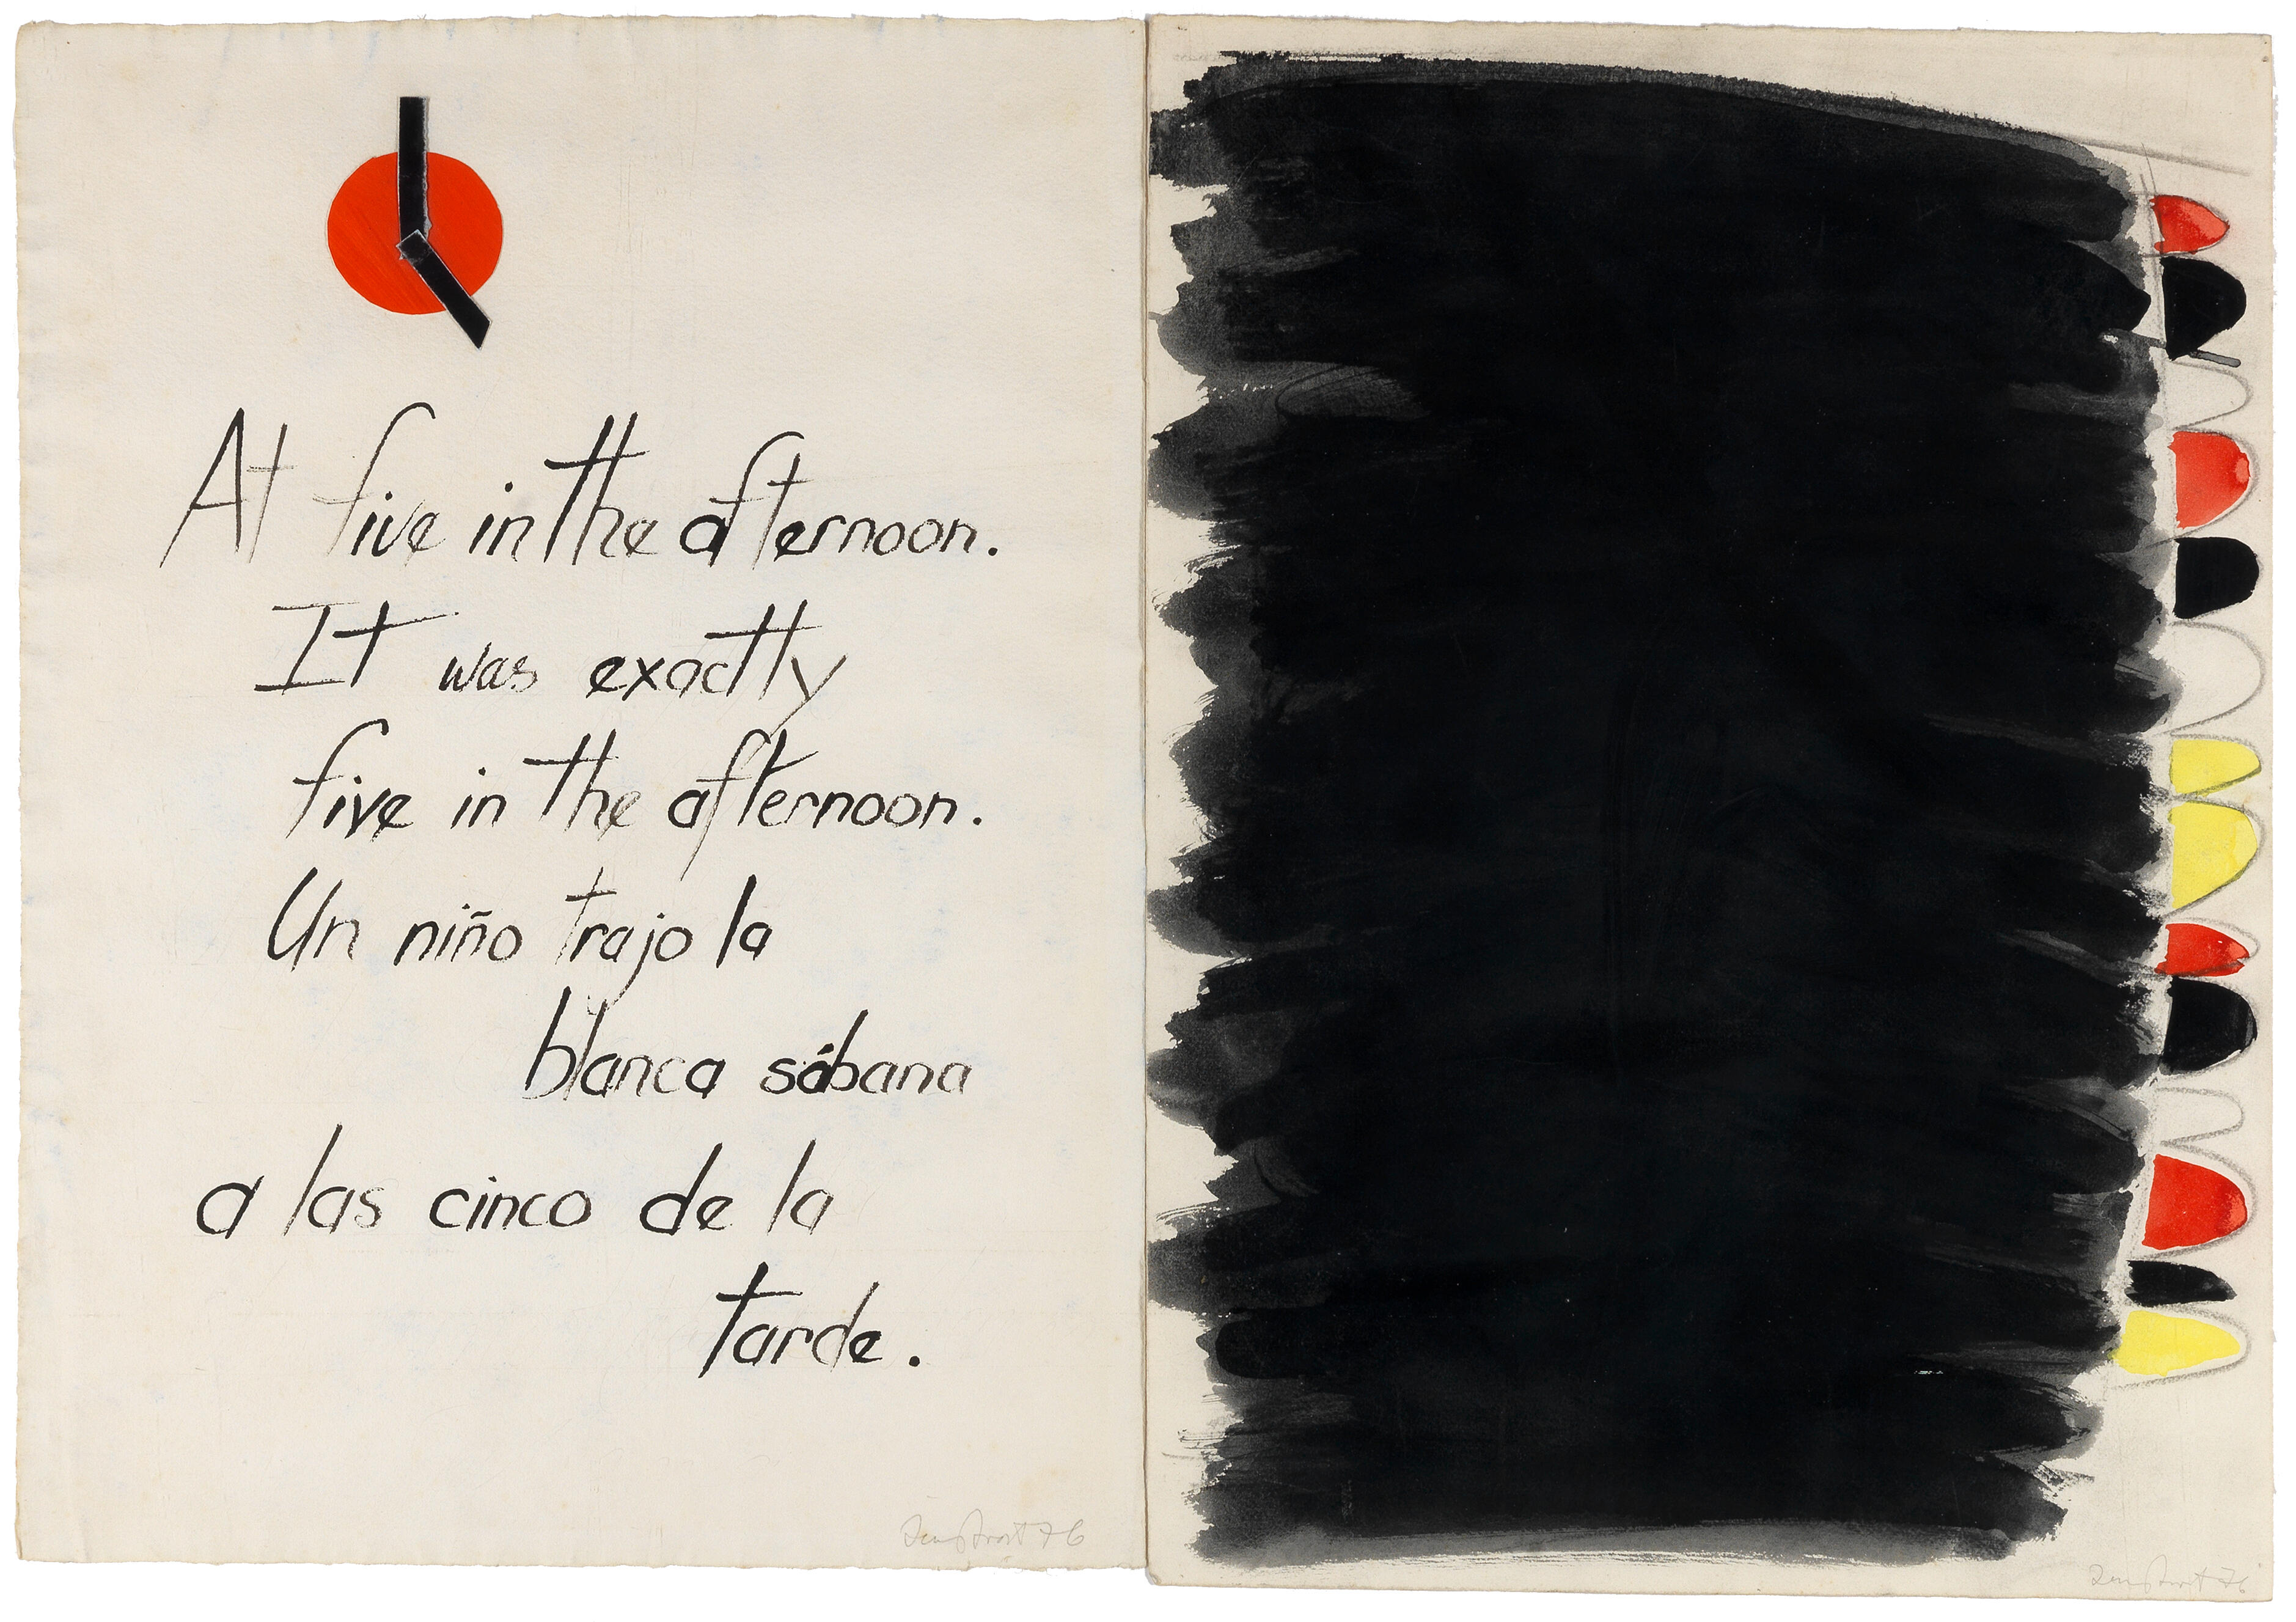 At five in the afternoon.
It was exactly
five in the afternoon.
Un niño trajo la
blanca sábana
a las cinco de la
tarde.
Terry Frost 76
Terry Frost 76